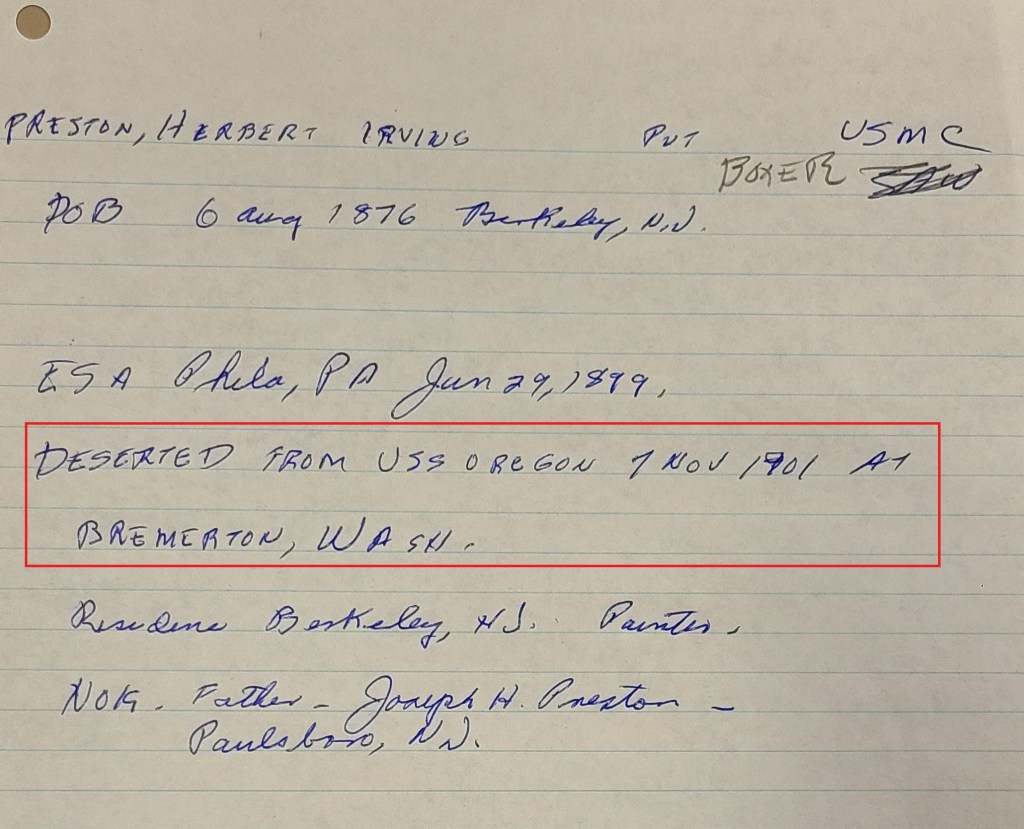 PRESTON, HERBERT IRVING PVT USMC
BOXER
POB 6 aug 1876 Berkeley, N.J.
ESA Phila, PA Jun 29, 1899.
DESERTED FROM USS OREGON 7 NOV 1901 AT
BREMERTON, WASH.
Residene Berkeley, NJ. Painter.
NOK. Father - Joseph H. Preston -
Paulsboro, NJ.